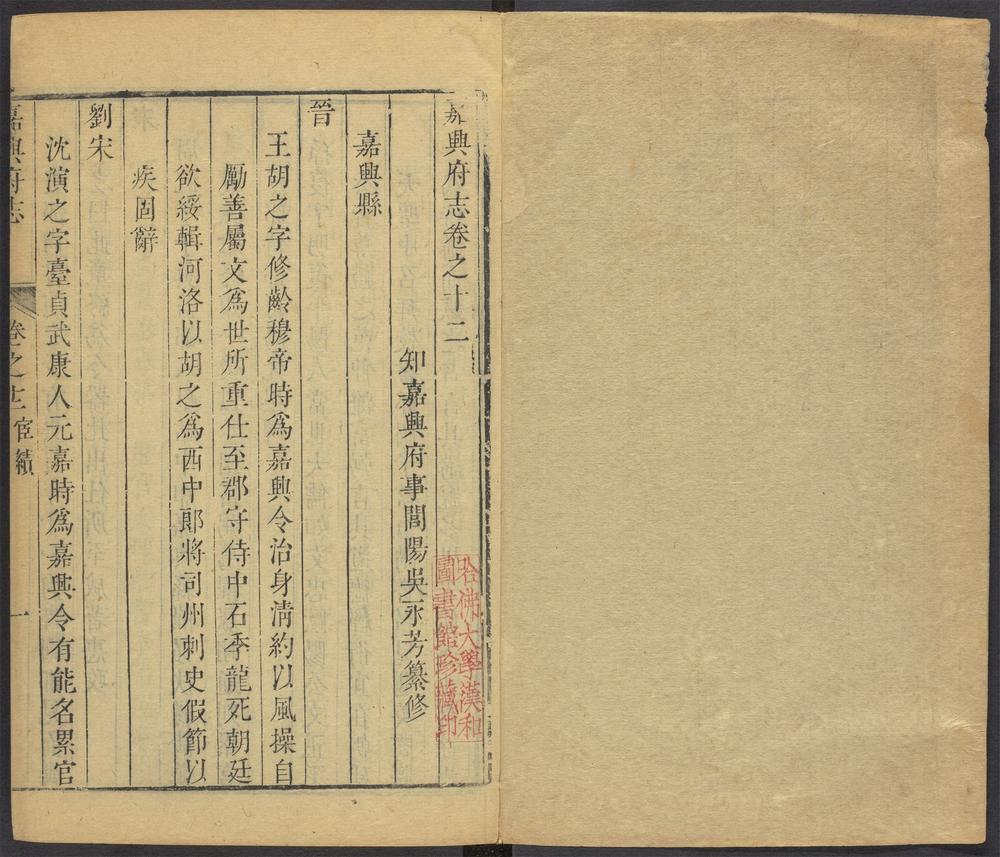 嘉興府志卷之十二
知嘉興府事閭陽吳永芳纂修
嘉興縣
晉
王胡之字修齡穆帝時爲嘉興令治身淸約以風操自
勵善屬文爲世所重仕至郡守侍中石季龍死朝廷
欲綏輯河洛以胡之爲西中郎將司州刺史假節以
疾固辭
劉宋
沈演之字臺貞武康人元嘉時爲嘉興令有能名累官
嘉興府志 卷之十二 宦績 一
哈佛大學漢和
圖書館珍藏印